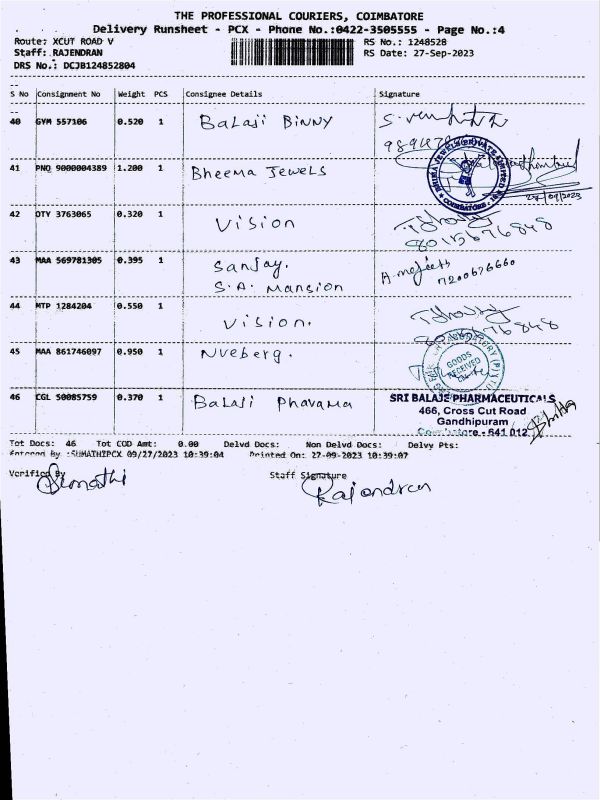 THE PROFESSIONAL COURIERS, COIMBATORE
Delivery Runsheet - PCX - Phone No.:0422-3505555 - Page No.:4
Route: XCUT ROAD V RS No.: 1248528
Staff: RAJENDRAN RS Date: 27-Sep-2023
DRS No.: DCJB124852804
S No Consignment No Weight PCS Consignee Details Signature
40 GYM 557106 0.520 1 Balaji Binny
41 PNQ 9000004389 1.200 1 Bheema Jewels
27/09/2023
42 OTY 3763065 0.320 1 Vision
8015676848
43 MAA 569781305 0.395 1 Sanjay.
S.A. Mansion
7200676660
44 MTP 1284204 0.550 1 Vision.
8015676848
45 MAA 861746097 0.950 1 Nueberg.
GOODS RECEIVED
46 CGL 50085759 0.370 1 Balaji Pharama
SRI BALAJI PHARMACEUTICALS
466, Cross Cut Road
Gandhipuram
Coimbatore - 641 012
Tot Docs: 46 Tot COD Amt: 0.00 Delvd Docs: Non Delvd Docs: Delvy Pts:
Entered By :SUMATHIPCX 09/27/2023 10:39:04 Printed On: 27-09-2023 10:39:07
Verified By Staff Signature
Sumathi Rajendran